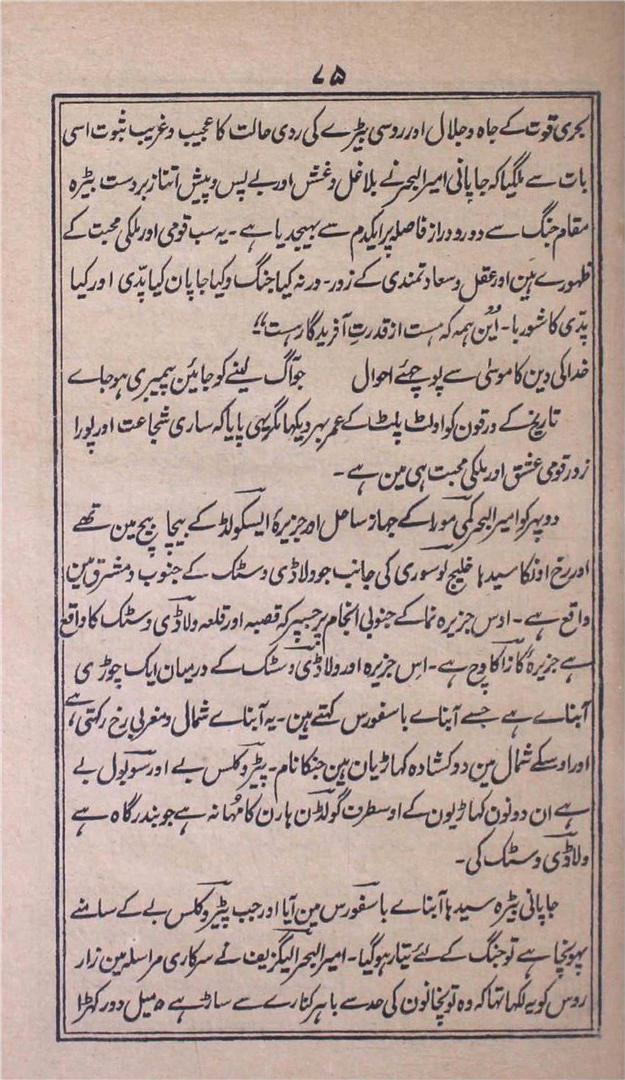 ۷۵
بحری قوت کے جاہ و جلال اور روسی بیڑے کی ردی حالت کا عجیب و غریب ثبوت اسی
بات سے ملگیا کہ جاپانی امیر البحر نے بلا غل و غش اور بے پس و پیش اتنا زبردست بیڑہ
مقام جنگ سے دور و دراز فاصلہ پر ایکدم سے بھیجدیا ہے ۔ یہ سب قومی اور ملکی محبت کے
ظہورے ہین اور عقل و سعادتمندی کے زور ۔ ورنہ کیا جنگ و کیا جاپان کیا پدّی اور کیا
پدّی کا شوربا ۔ این ہمہ کہ ہست از قدرتِ آفریدگار ہست"
خدا کی دین کا موسیٰ سے پوچھئے احوال جو آگ لینے کو جائین پیمبری ہو جاے
تاریخ کے ورقون کو اولٹ پلٹ کے عمر بہر دیکھا مگر یہی پایا کہ ساری شجاعت اور پورا
زور قومی عشق اور ملکی محبت ہی مین ہے ۔
دوپہر کو امیر البحر کمی مورا کے جہاز ساحل اور جزیرۂ ایسکولڈ کے بیچا بیچ مین تھے
اور رخ اونکا سیدہا خلیج اوسوری کی جانب جو ولاڈی وسٹک کے جنوب و مشرق مین
واقع ہے ۔ اوس جزیرہ نما کے جنوبی انجام پر جسپر کہ قصبہ اور قلعہ ولاڈی وسٹک کا واقع
ہے جزیرۂ کازاکا وچ ہے ۔ اس جزیرہ اور ولاڈی وسٹک کے درمیان ایک چوڑی
آبناے ہے جسے آبناے باسفورس کہتے ہین ۔ یہ آبناے شمال و مغربی رخ رکہتی ہے
اور اوسکے شمال مین دو کشادہ کہاڑیان ہین جنکا نام ۔ پیٹروکلس بے اور سوبول بے
ہے ان دونون کہاڑیون کے اوسطرف گولڈن ہارن کا مُہانہ ہے جو بندرگاہ ہے
ولاڈی وسٹک کی ۔
جاپانی بیڑہ سیدہا آبناے باسفورس مین آیا اور جب پیٹروکلس بے کے سامنے
پہونچا ہے تو جنگ کے لئے تیار ہو گیا ۔ امیر البحر الیگزیف نے سرکاری مراسلہ مین زار
روس کو یہ لکھا تھا کہ وہ توپخانون کی حد سے باہر کنارے سے ساڑہے ۵ میل دور کھڑا